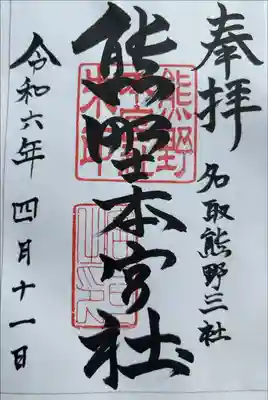 奉拝
名取熊野三社
熊野本宮社
令和六年 四月十一日